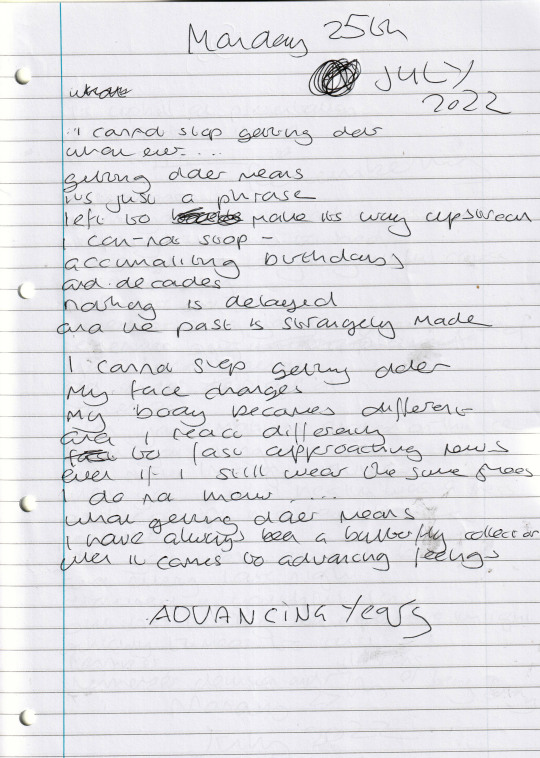 Monday 25th
JULY
2022
I cannot stop getting older
what ever....
getting older means
its just a phrase
left to make its way upstream
I can-not stop -
accumaliting birthdays
and decades
nothing is delayed
and the past is strangely made
I cannot stop getting older
My face changes
My body becomes different
and I react differently
to fast approaching news
even if I still wear the same
I do not know .....
what getting older means
I have always been a butterfly collector
when it comes to advancing feelings
ADVANCING YEARS